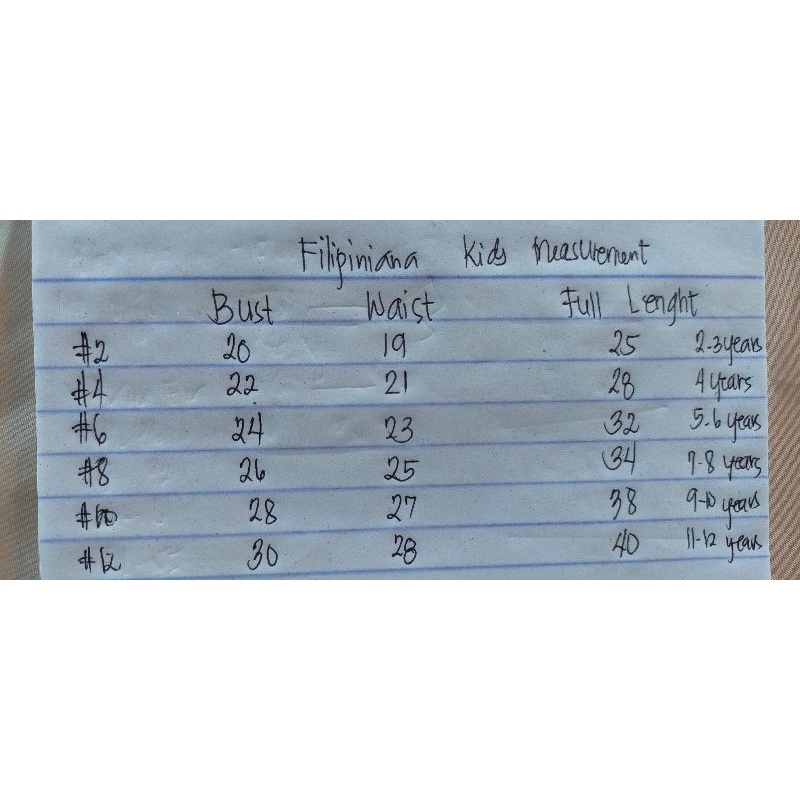 Filipiniana Kids Measurement
Bust Waist Full Lenght
#2 20 19 25 2-3 years
#4 22 21 28 4 years
#6 24 23 32 5-6 years
#8 26 25 34 7-8 years
#10 28 27 38 9-10 years
#12 30 28 40 11-12 years